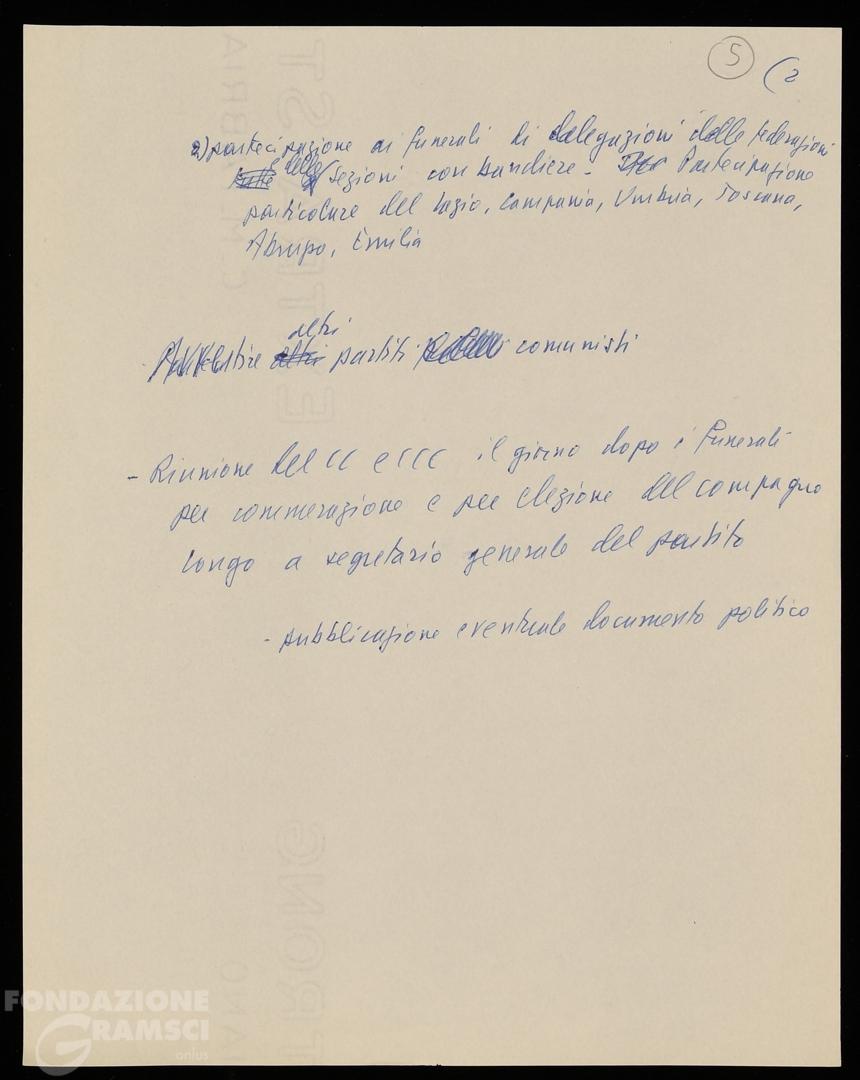 5
(2
2) partecipazione ai funerali di delegazioni delle federazioni
e delle sezioni con bandiere - Partecipazione
particolare del Lazio, Campania, Umbria, Toscana,
Abruzzo, Emilia
altri
partiti comunisti
- Riunione del CC e CCC il giorno dopo i funerali
per commerazione e per elezione del compagno
Longo a segretario generale del partito
- pubblicazione eventuale documento politico
FONDAZIONE
GRAMSCI
onlus